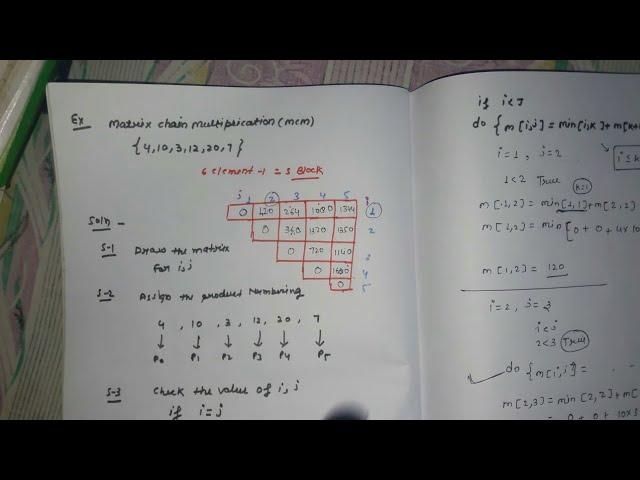 Ex Matrix chain multiplication (mcm)
{4,10,3,12,20,7}
6 element -1 = 5 Block
j 1 2 3 4 5 i
0 120 264 1080 1344 1
0 360 1320 1350 2
0 720 1140 3
0 1680 4
0 5
Soln -
S-1 Draw the matrix
for i,j
S-2 Assign the product Numbering
4 , 10 , 3 , 12 , 20 , 7
P0 P1 P2 P3 P4 P5
S-3 Check the value of i, j
if i=j
if i<J
do { m[i,j] = min[i,k]+m[k+
i=1 , j=2
i≤k
1<2 True
k=1
m[1,2] = min[1,1]+m[2,2]
m[1,2] = min[0+0+4×10
m[1,2] = 120
i=2, j=3
i<j
2<3 True
do {m[i,j] =
m[2,3] = min[2,2]+m[
= 0+0+10×3